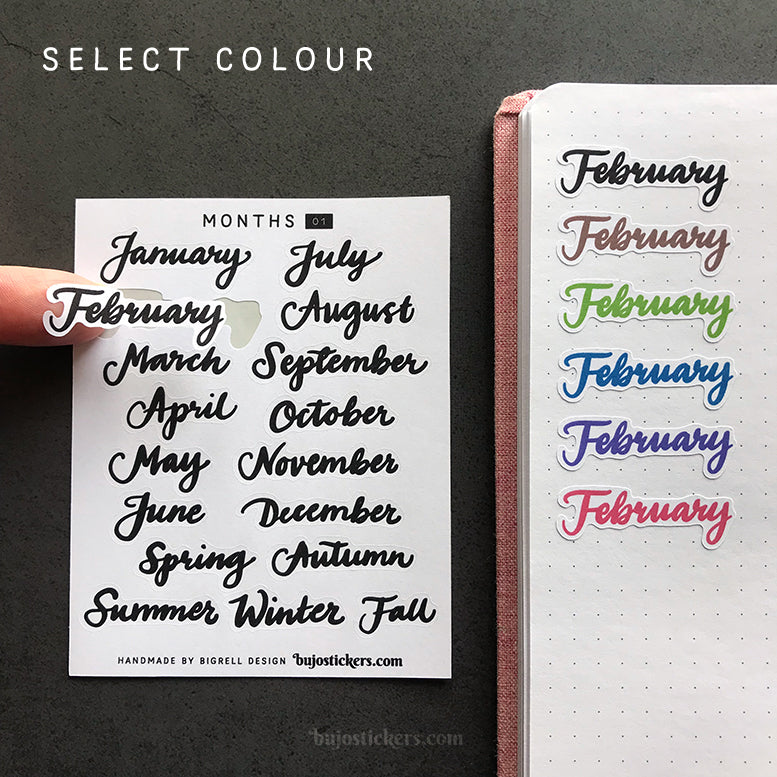 SELECT COLOUR
MONTHS 01
January July
February August
March September
April October
May November
June December
Spring Autumn
Summer Winter Fall
HANDMADE BY BIGRELL DESIGN bujostickers.com
February
February
February
February
February
February
bujostickers.com